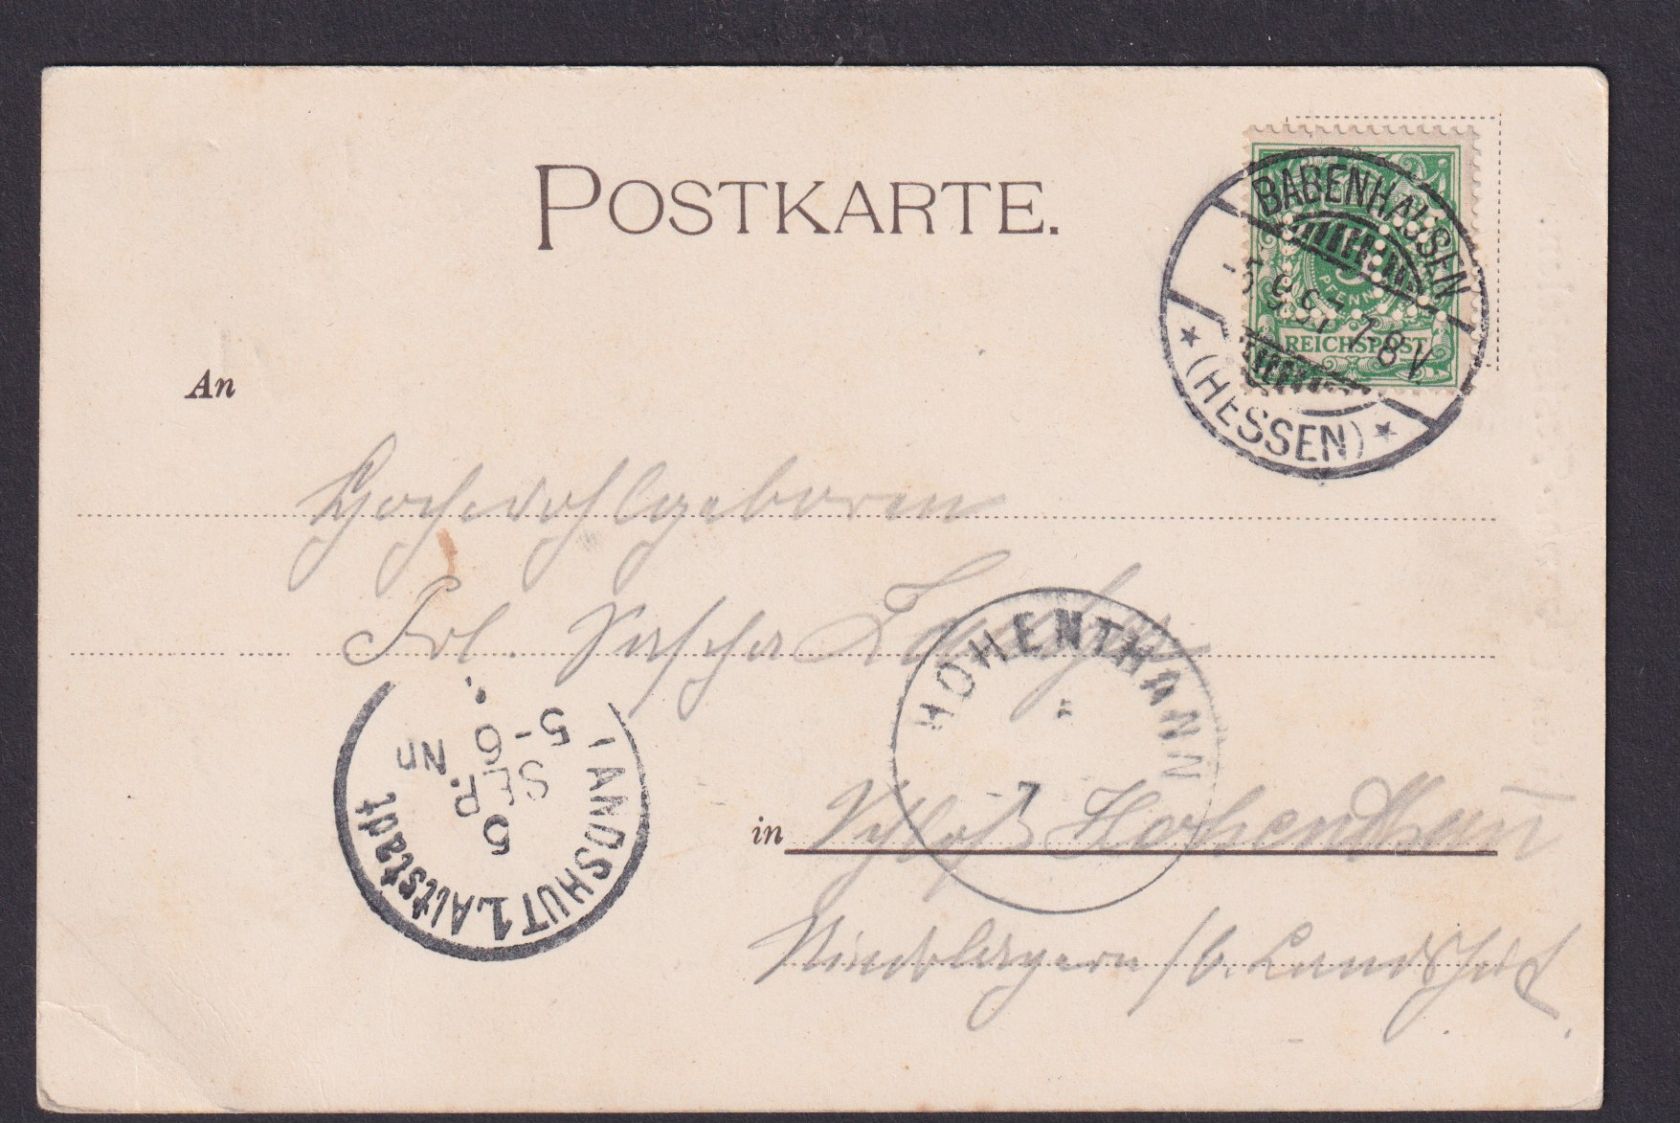 POSTKARTE.
BABENHAUSEN
5 9 97 7-8 V.
(HESSEN)
PFENNIG
REICHSPOST
An
Hochwohlgeboren
Frl. Sascha
HOHENTHANN
7
LANDSHUT 1. Altstadt
5
SEP.
5-6 Nn
in Schloß Hohenthann
Niederbayern / b. Landshut.